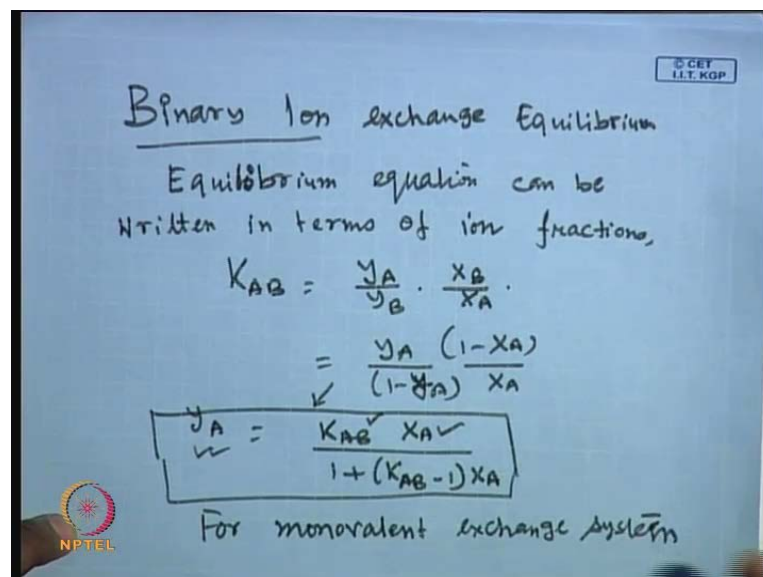 © CET
I.I.T. KGP
Binary Ion exchange Equilibrium
Equilibrium equation can be
written in terms of ion fractions,
K_AB = y_A/y_B · x_B/x_A ·
= y_A/(1-y_A) (1-x_A)/x_A
y_A = K_AB x_A / 1+(K_AB-1)x_A
For monovalent exchange system
NPTEL